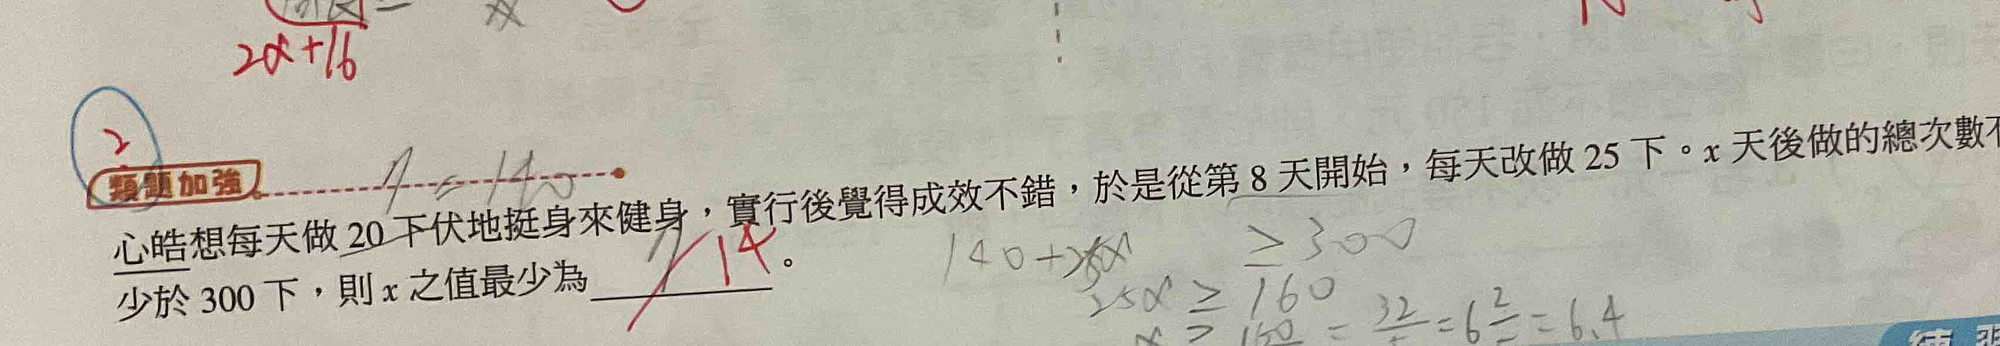 2x+16
2
類題加強
7 = 140
心皓想每天做 20 下伏地挺身來健身，實行後覺得成效不錯，於是從第 8 天開始，每天改做 25 下。x 天後做的總次數不
少於 300 下，則 x 之值最少為 7 14 。
140+25x ≥ 300
25x ≥ 160
x ≥ 160 = 32 = 6 2 = 6.4
練習